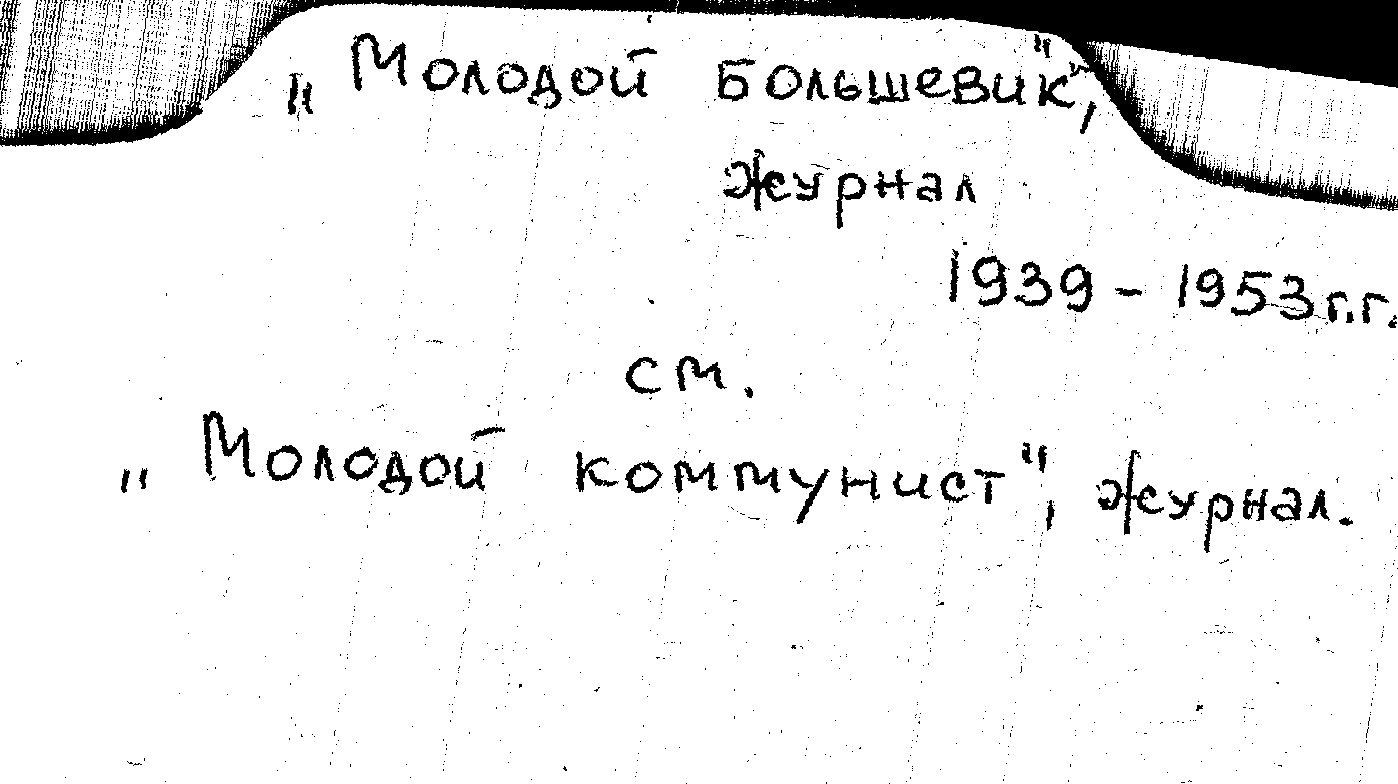 „Молодой большевик",
журнал
1939 - 1953 г.г.
см.
„Молодой коммунист", журнал.